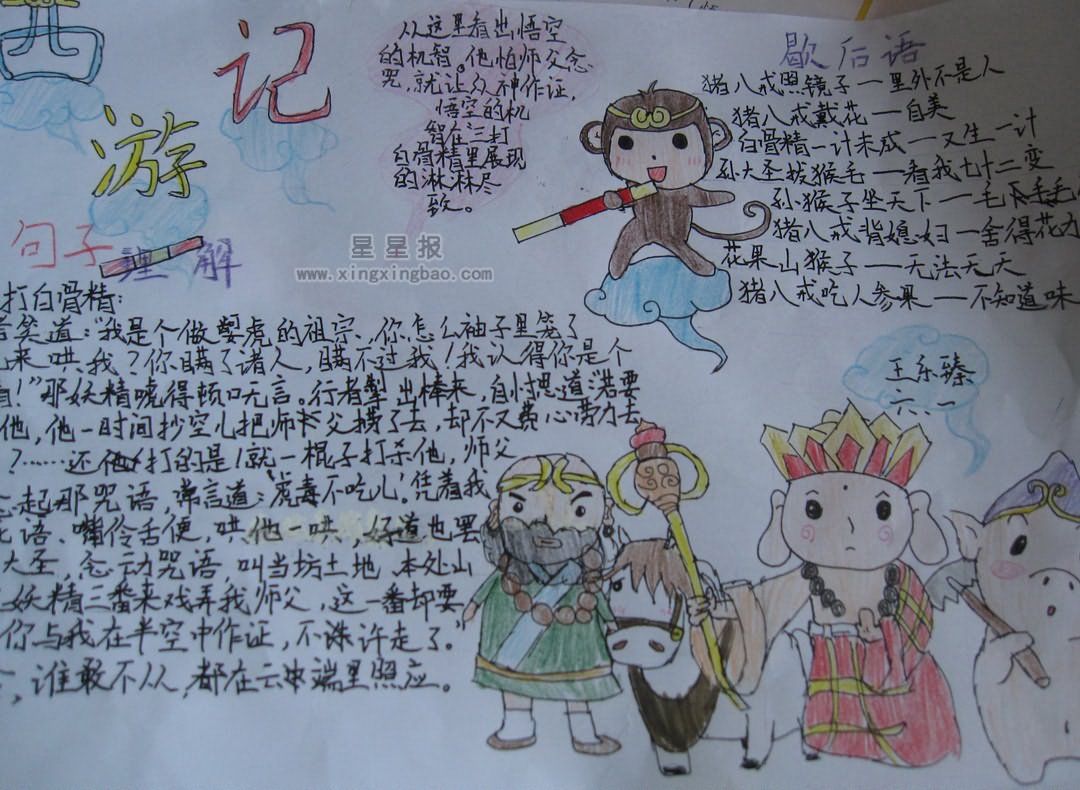 西
游
记
从这里看出悟空
的机智。他怕师父念
咒,就让众神作证,
悟空的机
智在三打
白骨精里展现
的淋淋尽
致。
歇后语
猪八戒照镜子—里外不是人
猪八戒戴花—自美
白骨精—计未成—又生一计
孙大圣拔猴毛—看我七十二变
孙猴子坐天下—毛
猪八戒背媳妇—舍得花力
花果山猴子—无法无天
猪八戒吃人参果—不知道味
王乐臻
六.一
句子理解
星星报
www.xingxingbao.com
打白骨精:
笑道:"我是个做 虎的祖宗、你怎么袖子里笼了
来哄我?你瞒了诸人,瞒不过我!我认得你是个
!"那妖精唬得顿口无言。行者掣出棒来,自忖思道:若要
他,他一时间抄空儿把师父捞了去,却不又费心劳力去
?……还 打的是!就一棍子打杀他,师父
念起那咒语,常言道:'虎毒不吃儿'。凭着我
语、嘴伶舌便,哄他一哄,好道也罢
大圣,念动咒语,叫当坊土地、本处山
妖精三番来戏弄我师父,这一番却要
你与我在半空中作证,不许走了。"
,谁敢不从,都在云中端里照应。